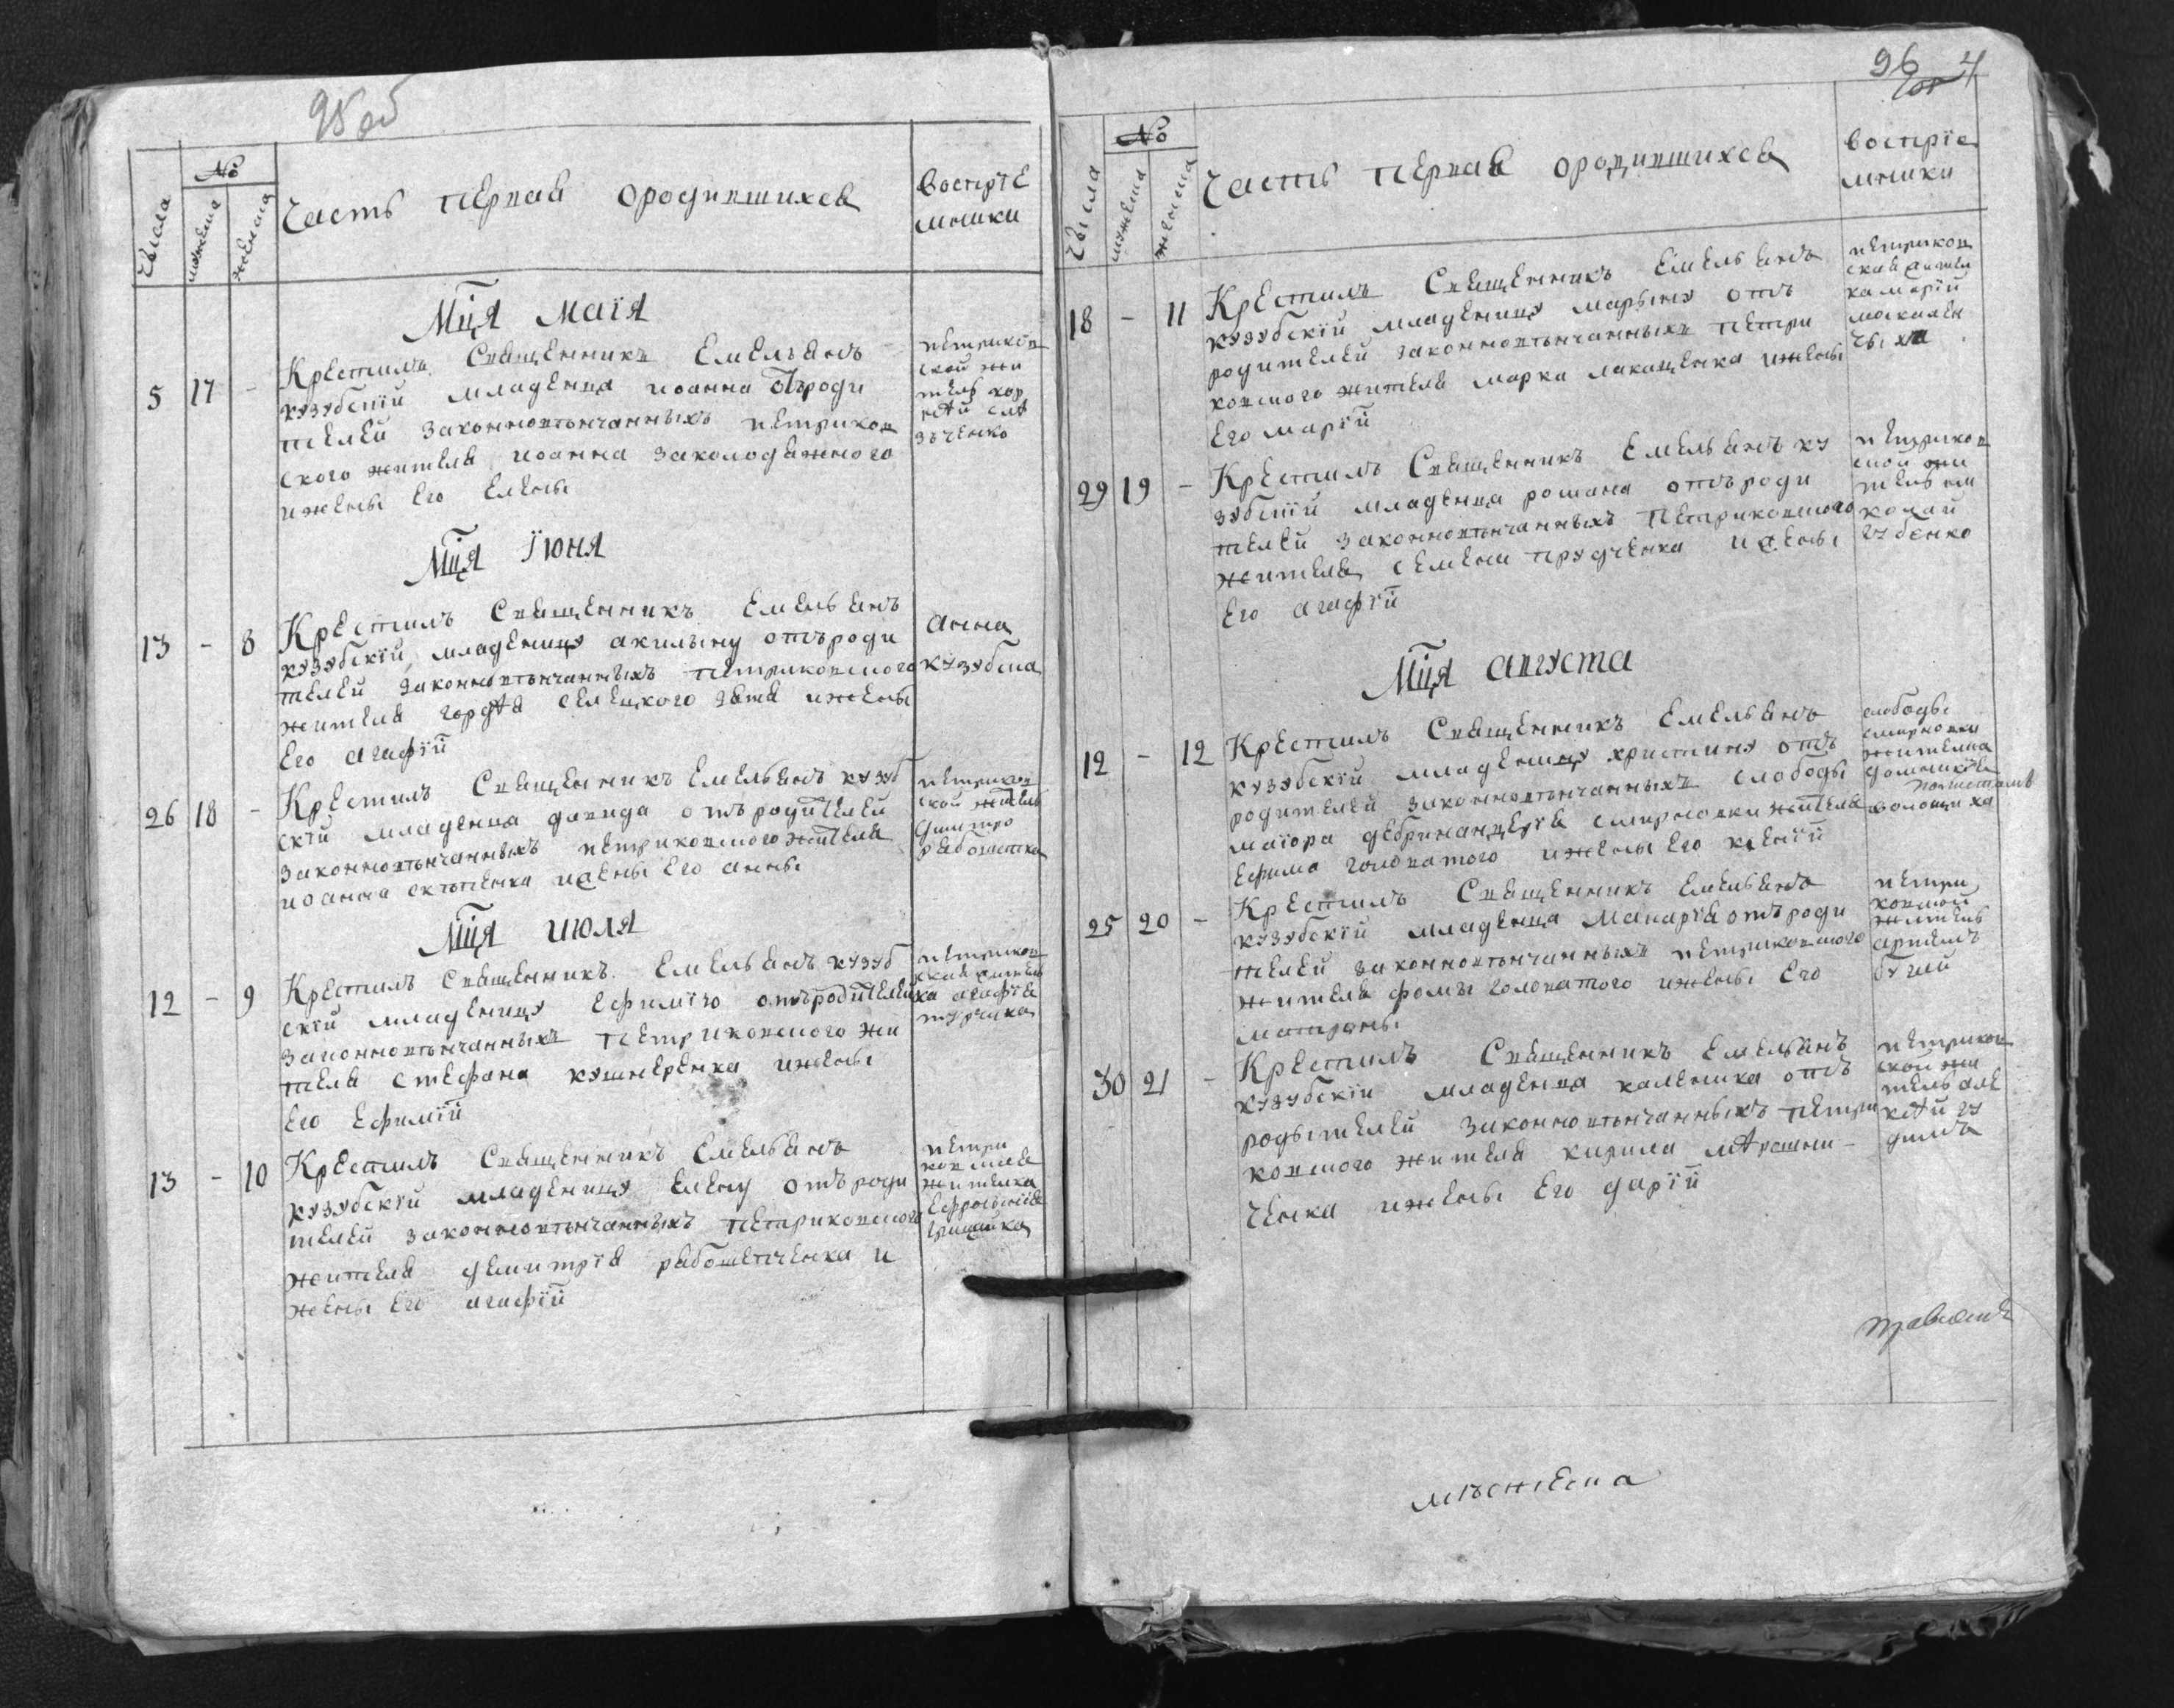 95 об
Числа
№
мужеска
женска
Часть первая ородившихся
восприе
мники
Мця маїя
5 17 - Крестилъ Священникъ Емельянъ
кузубскій младенца иоанна отъроди
телей законновѣнчанныхъ петриков
ского жителя иоанна заколодяжного
ижены Его Елены
петриков
ской жи
тель
Мця Їюня
13 - 8 Крестилъ Священникъ Емельянъ
кузубскій младеницу акилыну отъроди
телей законновѣнчанныхъ петриковского
жителя гордѣя селецкого зятя ижены
Его агафїй
анна
кузубска
26 18 - Крестилъ Священникъ Емельянъ кузуб
скїй младенца давида отъродителей
законновѣнчанныхъ петриковского жителя
иоанна ижены Его анны
петриков
ской житель
дмитро
Мця июля
12 - 9 Крестилъ священникъ Емельянъ кузуб
скїй младеницу ефимїю отъродителей
законновѣнчанныхъ петриковского жи
теля стефана кушнеренка ижены
Его Ефимїй
петриков
ская жител
ка агафїя
13 - 10 Крестилъ Священникъ Емельянъ
кузубскїй младеницу елену отъроди
телей законновѣнчанныхъ петриковского
жителя демитрїя работенченка и
жены Его агафїй
петри
ковская
жителка
Ефросынїя
грицайка
96 4
Числа
№
мужеска
женска
Часть первая ородившихся
восприе
мники
18 - 11 Крестилъ Священникъ Емельянъ
кузубскїй младеницу марыну отъ
родителей законновѣнчанныхъ петри
ковского жителя марка лакащенка ижены
Его марїй
петриков
ская жител
ка марїй
москален
чыха
29 19 - Крестилъ Священникъ Емельянъ ку
зубскїй младенца романа отъроди
телей законновѣнчанныхъ петриковского
жителя семена прудченка ижены
Его агафїй
петриков
ской жи
тель ни
колай
губенко
Мця августа
12 - 12 Крестилъ Священникъ Емельянъ
кузубскїй младеницу христину отъ
родителей законновѣнчанныхъ слободы
маїора смирновки жителя
Ефима головатого ижены Его ксенїй
слободы
смирновки
жителка
домникїя
волощиха
25 20 - Крестилъ Священникъ Емельянъ
кузубскїй младенца Макарїя отъроди
телей законновѣнчанныхъ петриковского
жителя фомы головатого ижены Его
матроны
петри
ковской
житель
артемъ
бугай
30 21 - Крестилъ Священникъ Емельянъ
кузубскїй младенца каленика отъ
родытелей законновѣнчанныхъ петри
ковского жителя кирила мѣрошни-
ченка ижены Его дарїй
петриков
ской жи
тель але
ксѣй гу
димъ